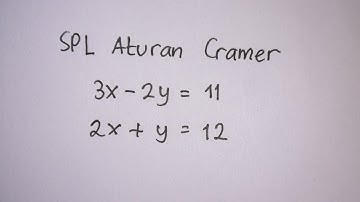 SPL Aturan Cramer
3x - 2y = 11
2x + y = 12